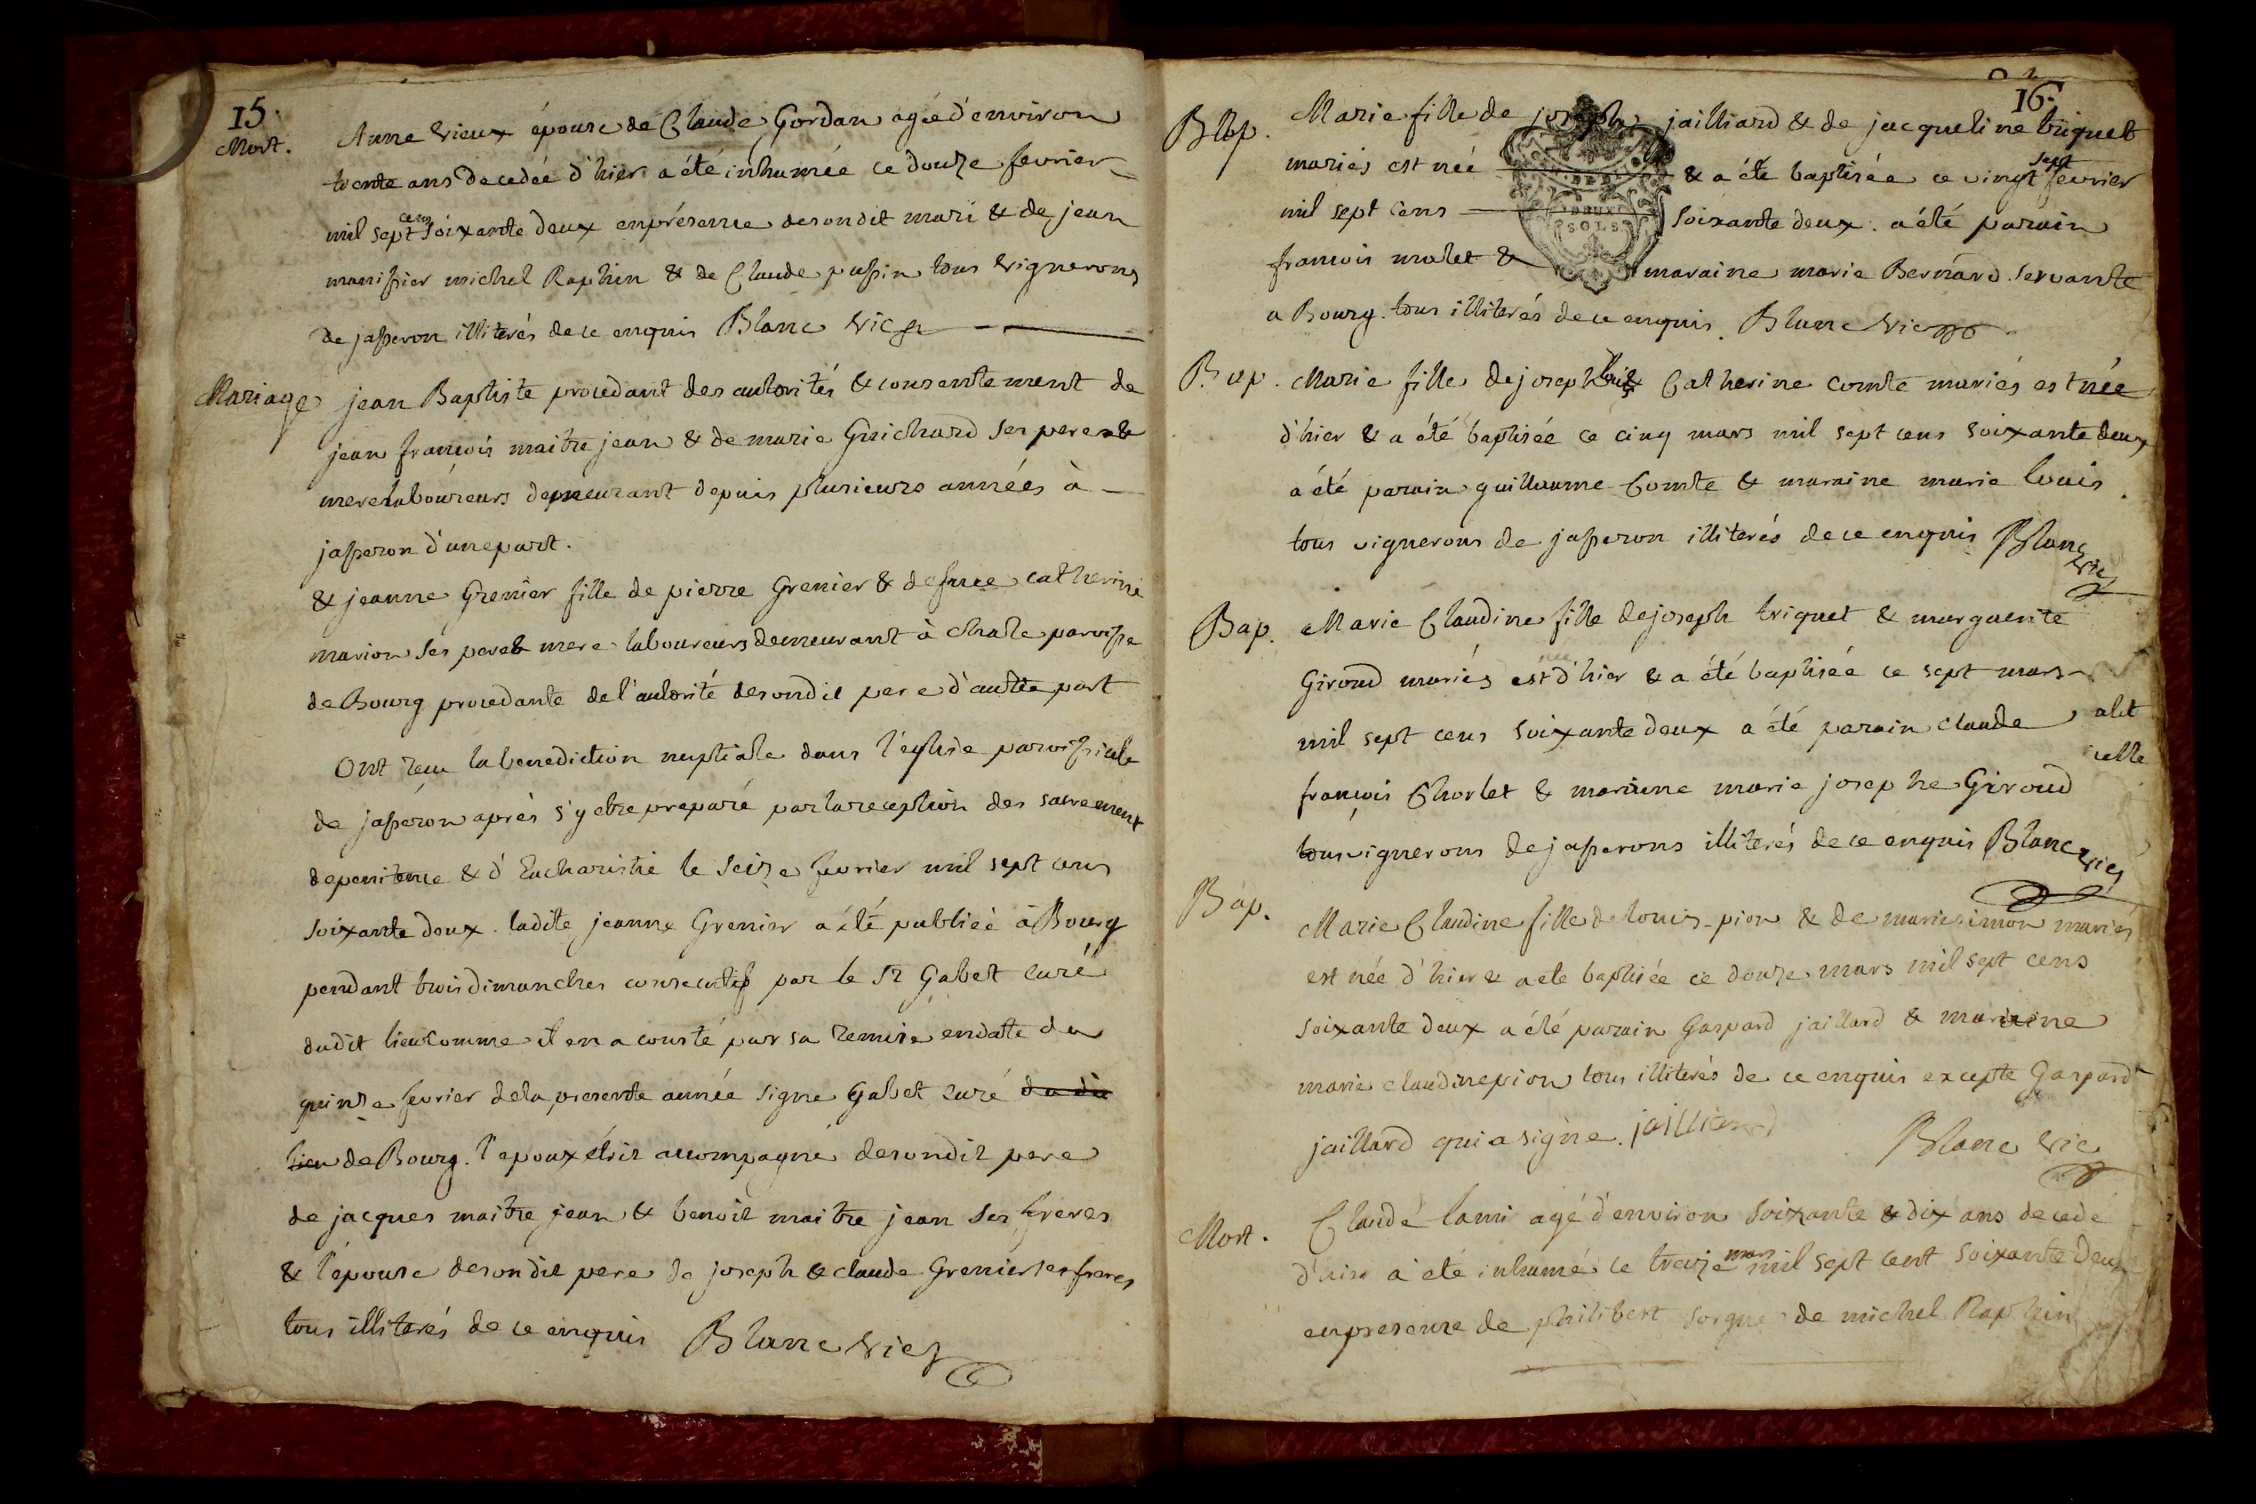 15.
Mort. Anne Vieux épouse de Claude Gordan agée d'environ
trente ans decedée d'hier a été inhumée ce douze fevrier
mil sept cens soixante deux en présence de sondit mari & de jean
manissier michel Raphin & de Claude passin tous vignerons
de jasseron illiterés de ce enquis Blanc vicr
Mariage jean Baptiste procedant des autorités & consentement de
jean françois maitre jean & de marie Guichard ses pere &
mere laboureurs demeurant depuis plusieurs années à
jasseron d'une part.
& jeanne Grenier fille de pierre Grenier & defunte catherine
marion ses pere & mere laboureurs demeurant à Chale paroisse
de Bourg procedante de l'autorité de sondit pere d'autre part
Ont reçu la benediction nuptiale dans l'eglise paroissiale
de jasseron aprés s'y etre preparé par la reception des sacrement
de penitence & d'Eucharistie le seize fevrier mil sept cens
soixante deux. ladite jeanne Grenier a été publiée à Bourg
pendant trois dimanches consecutifs par le Sr Gabet curé
dudit lieu comme il en a consté par sa remise en datte du
quinze fevrier de la presente année signé Gabet curé dudit
lieu de Bourg. l'epoux étoit accompagné de sondit pere
de jacques maitre jean & benoit maitre jean ses freres
& l'épouse de sondit pere de joseph & claude Grenier ses freres
tous illiterés de ce enquis Blanc vicr
16.
Bap. Marie fille de joseph jailliard & de jacqueline triquet
mariés est née & a été baptisée ce vingt sept fevrier
mil sept cens soixante deux. a été parain
françois molet & maraine marie Bernard servante
a Bourg. tous illiterés de ce enquis. Blanc vic
DEUX
SOLS
Bap. Marie fille de joseph louis & Catherine comte mariés est née
d'hier & a été baptisée ce cinq mars mil sept cens soixante deux
a été parain guillaume Comte & maraine marie louis
tous vignerons de jasseron illiterés de ce enquis Blanc
vic
Bap. Marie Claudine fille de joseph triquet & marguerite
Giroud mariés est née d'hier & a été baptisée ce sept mars
mil sept cens soixante deux a été parain claude
françois Chorlet & maraine marie josephe Giroud
tous vignerons de jasserons illiterés de ce enquis Blanc vic
Bap. Marie Claudine fille de louis pion & de marie simon mariés
est née d'hier & a ete baptisée ce douze mars mil sept cens
soixante deux a été parain Gaspard jaillard & maraine
marie claudine pion tous illiterés de ce enquis excepté Gaspard
jaillard qui a signé. jailliard Blanc vic
Mort. Claude lami agé d'environ soixante & dix ans decedé
d'hier a été inhumé ce treize mars mil sept cent soixante deux
en presence de philibert de michel Raphin